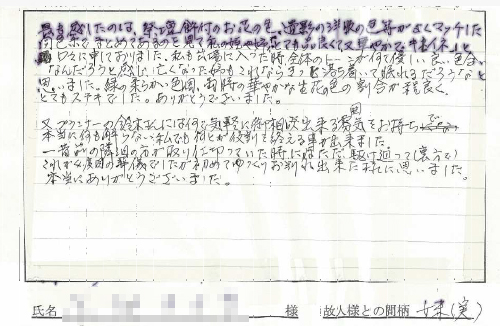 最高感じたのは、祭壇飾付のお花の色、遺影の洋服の色等がよくマッチした
同色系でまとめてあるのを見て私の姪や姉達でも品良くて華やかで本当にキレイと
口々に申しておりました。私も会場に入った時全体のトーンが何て優しい良い色合
なんだろうと感じ、亡くなった姉もこれならきっと落ち着いて眠れるだろうなと
思いました。緑の柔らかい色調、お時の華やかなお花の色の割合が程良く、
とてもステキでした。ありがとうございました。
又プランナーの鈴木さんには何でも気軽に御相談出来る雰囲気をお持ちで
本当に何も解らない私でも何とか役割を終える事が出来ました。
一昔前の隣近所の方が取り仕切っていた時にはただ駆け廻って(裏方で)
これが家族の葬儀でしたが初めてゆっくりお別れ出来た様に思いました。
本当にありがとうございました。
氏名 様 故人様との間柄 妹(実)